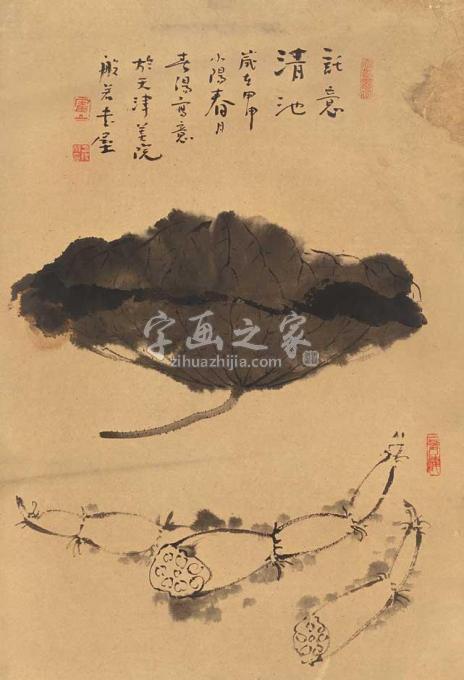 託意
清池
歲在甲申
小陽春月
春陽寫意
於天津美院
般若素屋
字画之家
zihuazhijia.com